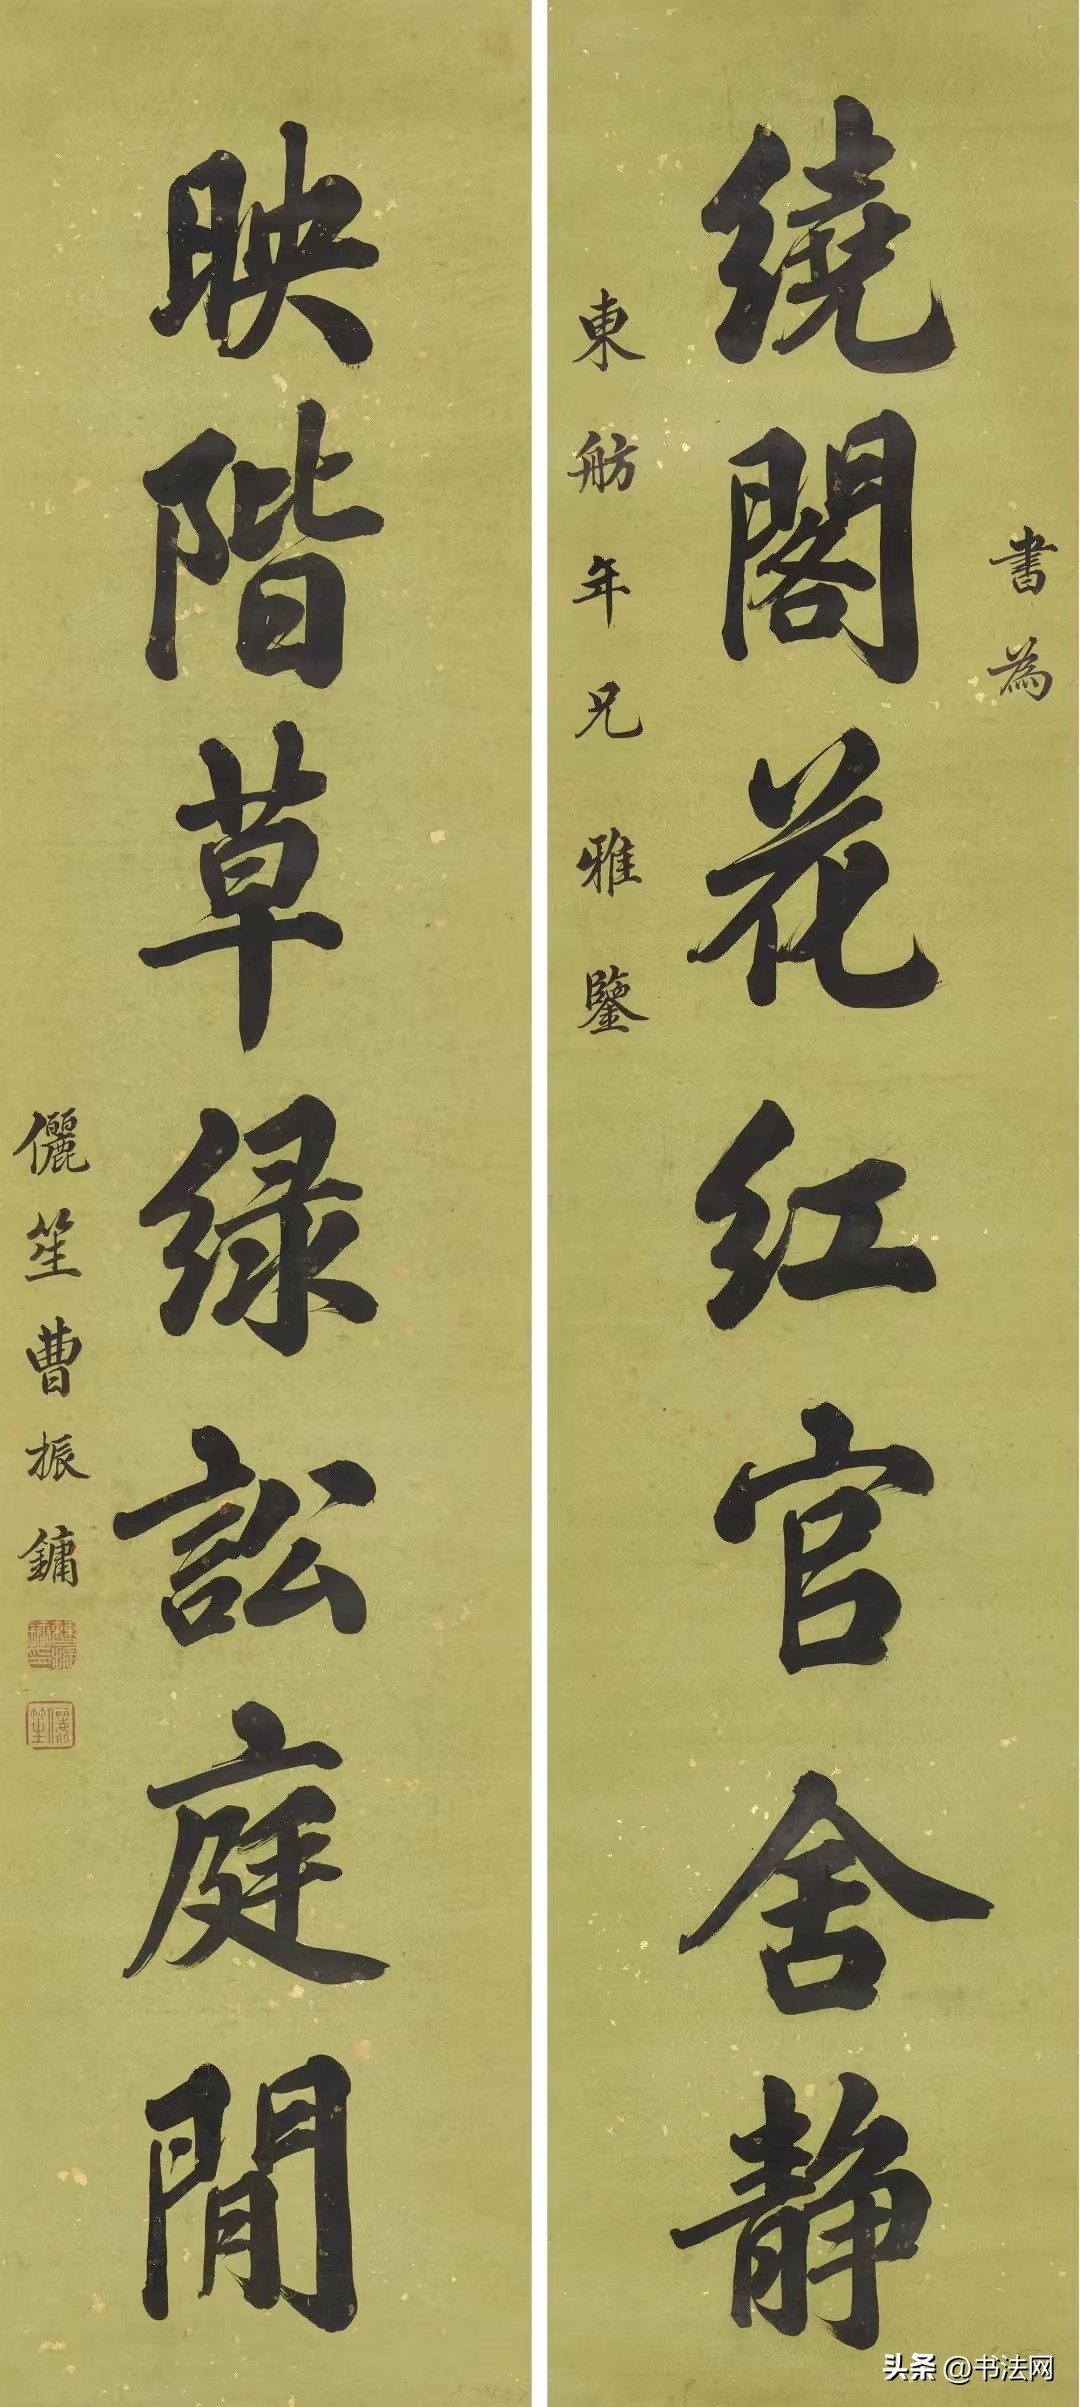 繞閣花红官舍静
書為
東舫年兄雅鑒
映階草绿訟庭閒
儷笙曹振鏞
儷笙
头条 @书法网